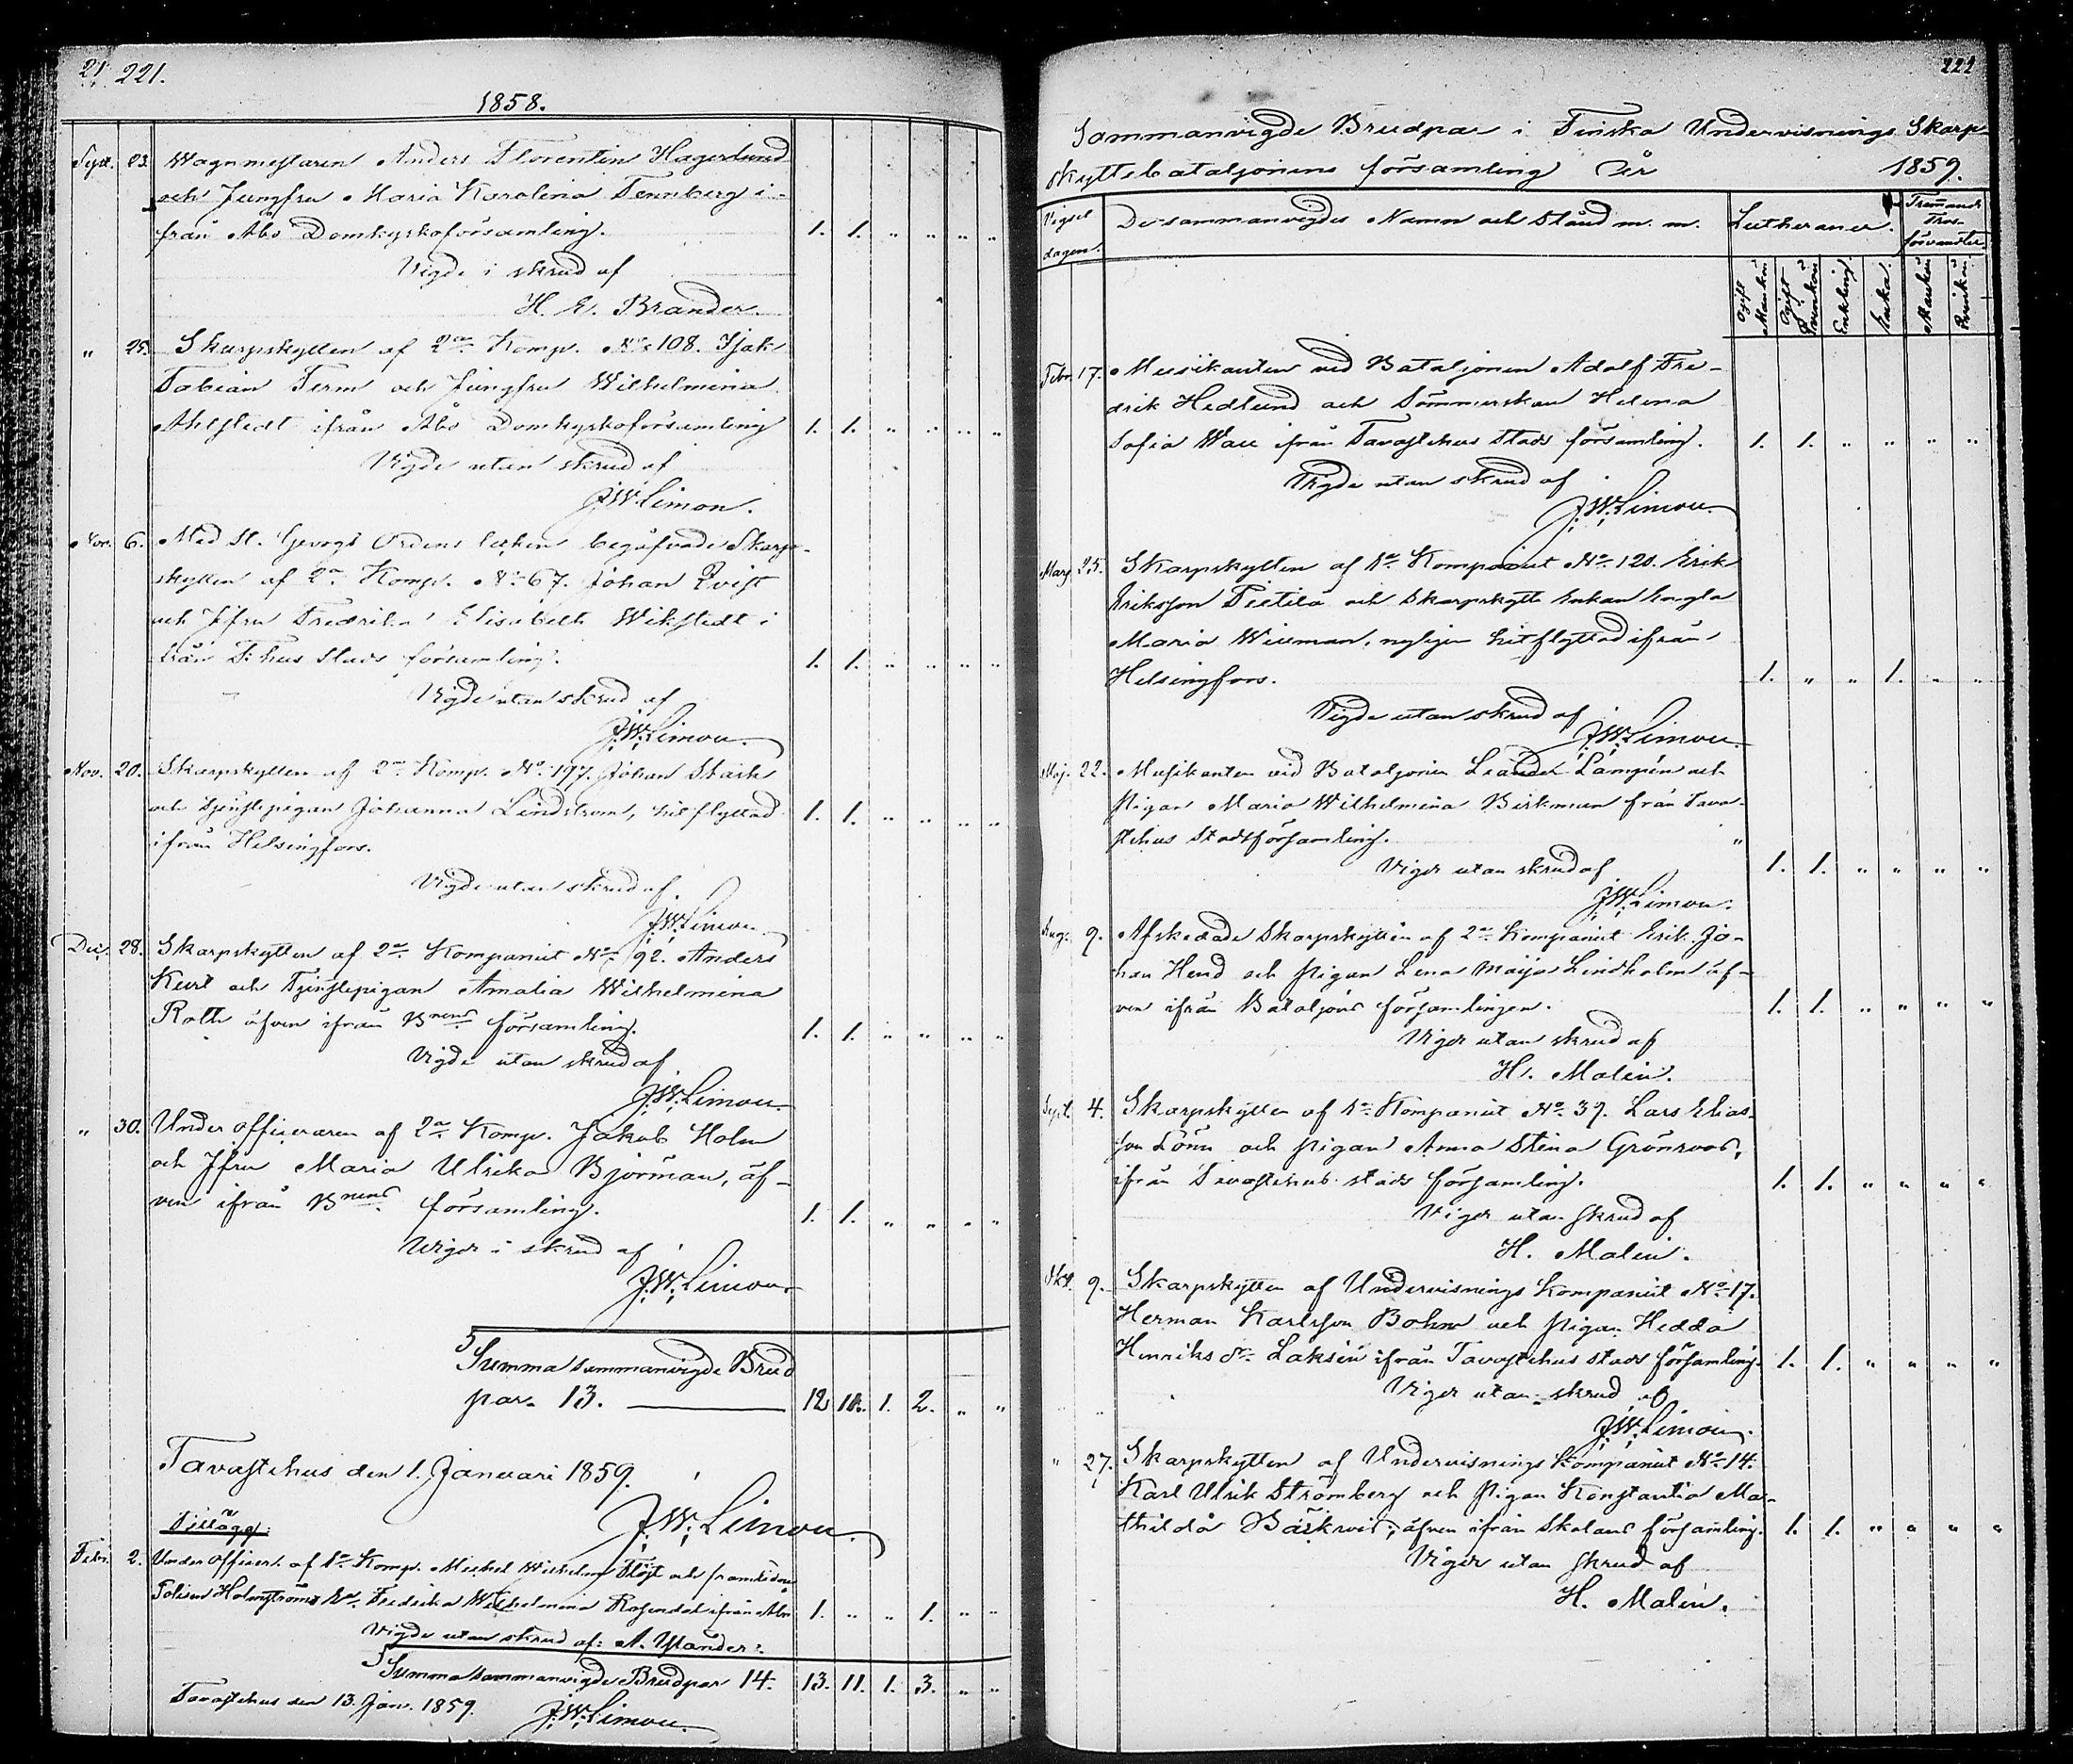 21. 221.
1858.
Sept. 23. Wagnmestaren Anders Florentin Hagerlund
och Jungfru Maria Karolina Tennberg i-
från Åbo Domkyrkoförsamling. 1. 1. " " " "
Vigde i skrud af
H. E. Brander.
" 25. Skarpskytten af 2a Komp. No 108. Isak
Fabian Term och Jungfru Wilhelmina
Ahlstedt ifrån Åbo Domkyrkoförsamling 1. 1. " " " "
Vigde utan skrud af
J. W. Limon.
Nov. 6. Med St. Georgs Ordens tecken begåfvade Skarp-
skytten af 2a Komp. No 67. Johan Qvist
och Jfru Fredrika Elisabeth Wikstedt i
från T:hus Stads församling. 1. 1. " " " "
Vigde utan skrud af
J. W. Limon.
Nov. 20. Skarpskytten af 2a Komp. No 197. Johan Stark
och Tjenstepigan Johanna Lindstrom, hitflyttad 1. 1. " " " "
ifrån Helsingfors.
Vigde utan skrud af
J. W. Limon
Dec. 28. Skarpskytten af 2a Kompaniet No 92. Anders
Keurl och Tjenstepigan Amalia Wilhelmina
Roth äfven ifrån Bnens församling. 1. 1. " " " "
Vigde utan skrud af
J. W. Limon.
" 30. Under officeraren af 2a Komp. Jakob Holm
och Jfru Maria Ulrika Bjorman, äf-
ven ifrån Bnens församling. 1. 1. " " " "
Viger i skrud af
J. W. Limon.
Summa sammanvigde Brud
par. 13. 12 10. 1. 2. " "
Tavastehus den 1. Januari 1859.
J. W. Limon
Tillägg:
Febr. 2. Under officer. af 1a Komp. Mickel Wilhelm Flöjt och framlidne
Polisen Holmströms Ea. Fredrika Wilhelmina Rosendal ifrån Åbo 1. " " 1. " "
Vigde utan skrud af: A. Ylander.
Summa sammanvigde Brudpar 14. 13. 11. 1. 3. " "
Tavastehus den 13. Jan. 1859. J. W. Limon.
222
Sammanvigde Brudpar i Finska Undervisnings Skarp-
skyttebataljonens församling År 1859.
Vigsel dagen. De sammanvigdes Namn och Stånd m. m. Lutheraner. Främmande Tros-förvandter
Ogift Mankön Ogift Qvinkön Enkling Enka. Mankön Qvinkön
Febr. 17. Musikanten vid Bataljonen Adolf Fre-
drik Hedlund och Sömmerskan Helena
Sofia Wall ifrån Tavastehus Stads församling. 1. 1. " " " "
Vigde utan skrud af
J. W. Limon.
Mars 25. Skarpskytten af 1a Kompaniet No 120. Erik
Eriksson Tietilä och Skarpskytt Enkan Engla
Maria Willman, nyligen hitflyttad ifrån
Helsingfors. 1. " " 1. " "
Vigde utan skrud af
J. W. Limon.
Maj. 22. Musikanten vid Bataljonen Leander Lampén och
Pigan Maria Wilhelmina Birkman från Tava-
stehus Stadsförsamling. "
Viger utan skrud af 1. 1. " " " "
J. W. Limon.
Aug. 9. Afskedade Skarpskytten af 2a Kompaniet Erik Jo-
han Hend och Pigan Lena Maija Lindholm äf-
ven ifrån Bataljons församlingen. 1. 1. " " " "
Viger utan skrud af
H. Malin.
Sept. 4. Skarpskytten af 1a Kompaniet No 39. Lars Elias-
son Lönn och Pigan Anna Stina Grönroos,
ifrån Tavastehus stads församling. 1. 1. " " " "
Viger utan skrud af
H. Malin.
Okt. 9. Skarpskytten af Undervisnings Kompaniet No 17.
Herman Karlsson Bohm och Pigan Hedda
Henriks dr. Laksén ifrån Tavastehus stads församling. 1. 1. " " " "
Viger utan skrud af
J. W. Limon.
" 27. Skarpskytten af Undervisnings Kompaniet No 14.
Karl Ulrik Strömberg och Pigan Konstantia Ma-
thilda Bäckvis, äfven ifrån Skolans församling. 1. 1. " " " "
Viger utan skrud af
H. Malin.